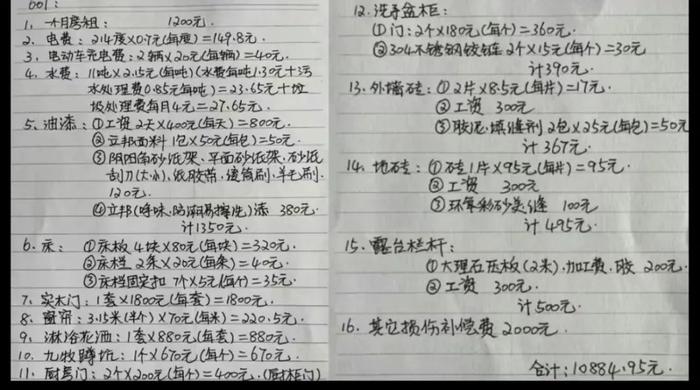 001:
1、一个月房租： 1200元.
2、电费：214度×0.7元(每度)=149.8元.
3、电动车充电费：2辆×20元(每辆)=40元.
4、水费：11吨×2.15元(每吨)(水费每吨1.30元+污
水处理费0.85元每吨)=23.65元+垃
圾处理费每月4元=27.65元.
5、油漆：①工资2天×400元(每天)=800元.
②立邦面料1包×50元(每包)=50元.
③阴阳角砂纸架、平面砂纸架、砂纸
刮刀(大小)、纸胶带、滚筒刷、羊毛刷.
120元.
④立邦(净味、防潮易擦洗)漆 380元.
计1350元.
6、床：①床板4块×80元(每块)=320元.
②床档2条×20元(每条)=40元.
③床档固定扣7个×5元(每个)=35元.
7、实木门：1套×1800元(每套)=1800元.
8、窗帘：3.15米(半个)×70元(每米)=220.5元.
9、淋浴花洒：1套×880元(每套)=880元.
10、九牧蹲坑：1个×670元(每个)=670元.
11、厨房门：2个×200元(每个)=400元.(厨柜门)
12、洗手盆柜：
①门：2个×180元(每个)=360元.
②304不锈钢铰链2个×15元(每个)=30元
计390元.
13、外墙砖：①2片×8.5元(每片)=17元.
②工资 300元.
③胶泥、填缝剂2包×25元(每包)=50元
计367元.
14、地砖：①砖1片×95元(每片)=95元.
②工资 300元.
③环氧彩砂美缝 100元
计495元.
15、露台栏杆：
①大理石压板(2米).加工费、胶 200元.
②工资 300元.
计500元.
16、其它损伤补偿费2000元.
合计：10884.95元.